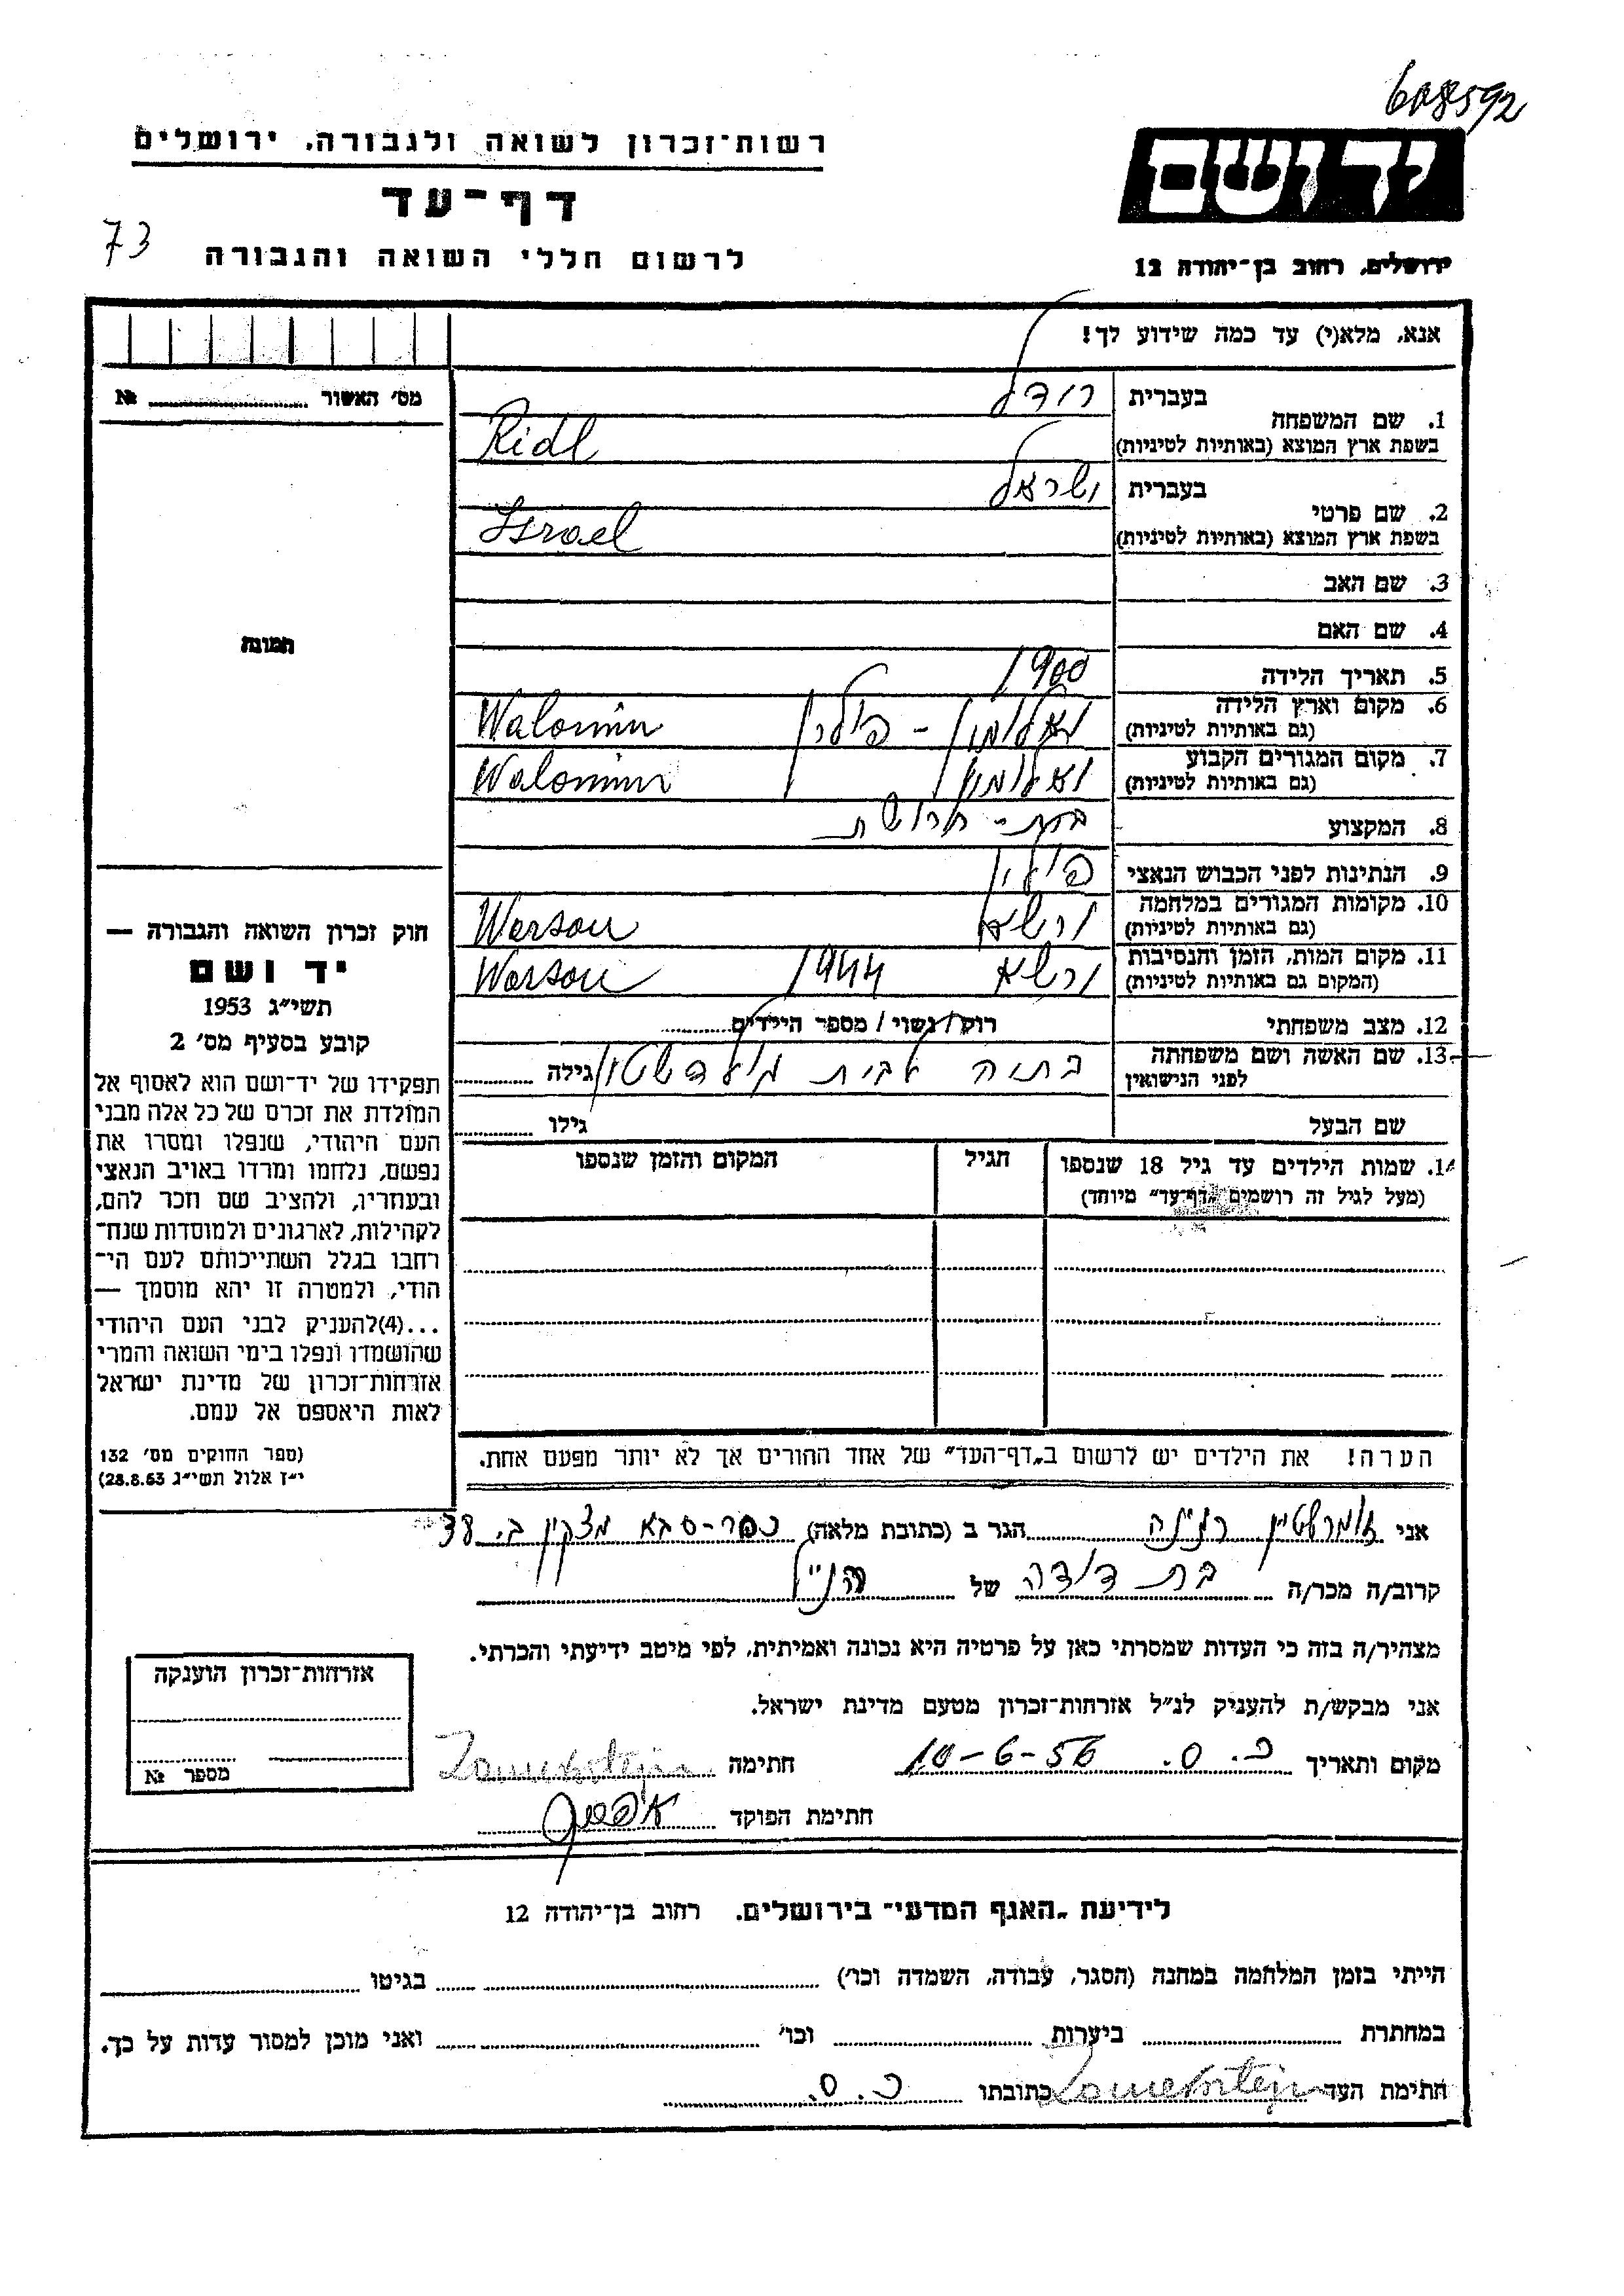 608592
רשות־זכרון לשואה ולגבורה, ירושלים
יד ושם
דף־עד
73
לרשום חללי השואה והגבורה
ירושלים, רחוב בן־יהודה 12
אנא, מלא(י) עד כמה שידוע לך!
מס׳ האשור № 
1. שם המשפחה
בעברית רודל
בשפת ארץ המוצא (באותיות לטיניות) Ridl
2. שם פרטי
בעברית ישראל
בשפת ארץ המוצא (באותיות לטיניות) Israel
3. שם האב
4. שם האם
תמונה
5. תאריך הלידה 1900
6. מקום וארץ הלידה (גם באותיות לטיניות) ואלומין - פולין Walomin
7. מקום המגורים הקבוע (גם באותיות לטיניות) ואלומין Walomin
8. המקצוע בית-חרושת
9. הנתינות לפני הכבוש הנאצי פולין
10. מקומות המגורים במלחמה (גם באותיות לטיניות) ורשא Warsau
11. מקום המות, הזמן והנסיבות (המקום גם באותיות לטיניות) ורשא 1944 Warsau
12. מצב משפחתי רוק/נשוי/מספר הילדים
13. שם האשה ושם משפחתה לפני הנישואין בתיה לבית גולדשטין גילה
שם הבעל גילו
14. שמות הילדים עד גיל 18 שנספו
(מעל לגיל זה רושמים „דף־עד״ מיוחד)
הגיל
המקום והזמן שנספו
חוק זכרון השואה והגבורה —
יד ושם
תשי״ג 1953
קובע בסעיף מס׳ 2
תפקידו של יד־ושם הוא לאסוף אל
המולדת את זכרם של כל אלה מבני
העם היהודי, שנפלו ומסרו את
נפשם, נלחמו ומרדו באויב הנאצי
ובעוזריו, ולהציב שם וזכר להם,
לקהילות, לארגונים ולמוסדות שנח־
רחבו בגלל השתייכותם לעם הי־
הודי, ולמטרה זו יהא מוסמך —
...(4)להעניק לבני העם היהודי
שהושמדו ונפלו בימי השואה והמרי
אזרחות־זכרון של מדינת ישראל
לאות היאספם אל עמם.
(ספר החוקים מס׳ 132
י״ז אלול תשי״ג 28.8.53)
הערה! את הילדים יש לרשום ב„דף־העד״ של אחד ההורים אך לא יותר מפעם אחת.
אני זומרשטיין רג׳ינה הגר ב (כתובת מלאה) כפר-סבא מצקין ב. 38
קרוב/ה מכר/ה בת דודה של הנ״ל
מצהיר/ה בזה כי העדות שמסרתי כאן על פרטיה היא נכונה ואמיתית, לפי מיטב ידיעתי והכרתי.
אני מבקש/ת להעניק לנ״ל אזרחות־זכרון מטעם מדינת ישראל.
מקום ותאריך כ. ס. 10-6-56 חתימה
חתימת הפוקד
אזרחות־זכרון הוענקה
מספר №
לידיעת „האגף המדעי״ בירושלים, רחוב בן־יהודה 12
הייתי בזמן המלחמה במחנה (הסגר, עבודה, השמדה וכו׳) בגיטו
במחתרת ביערות וכו׳ ואני מוכן למסור עדות על כך.
חתימת העד כתובתו כ. ס.